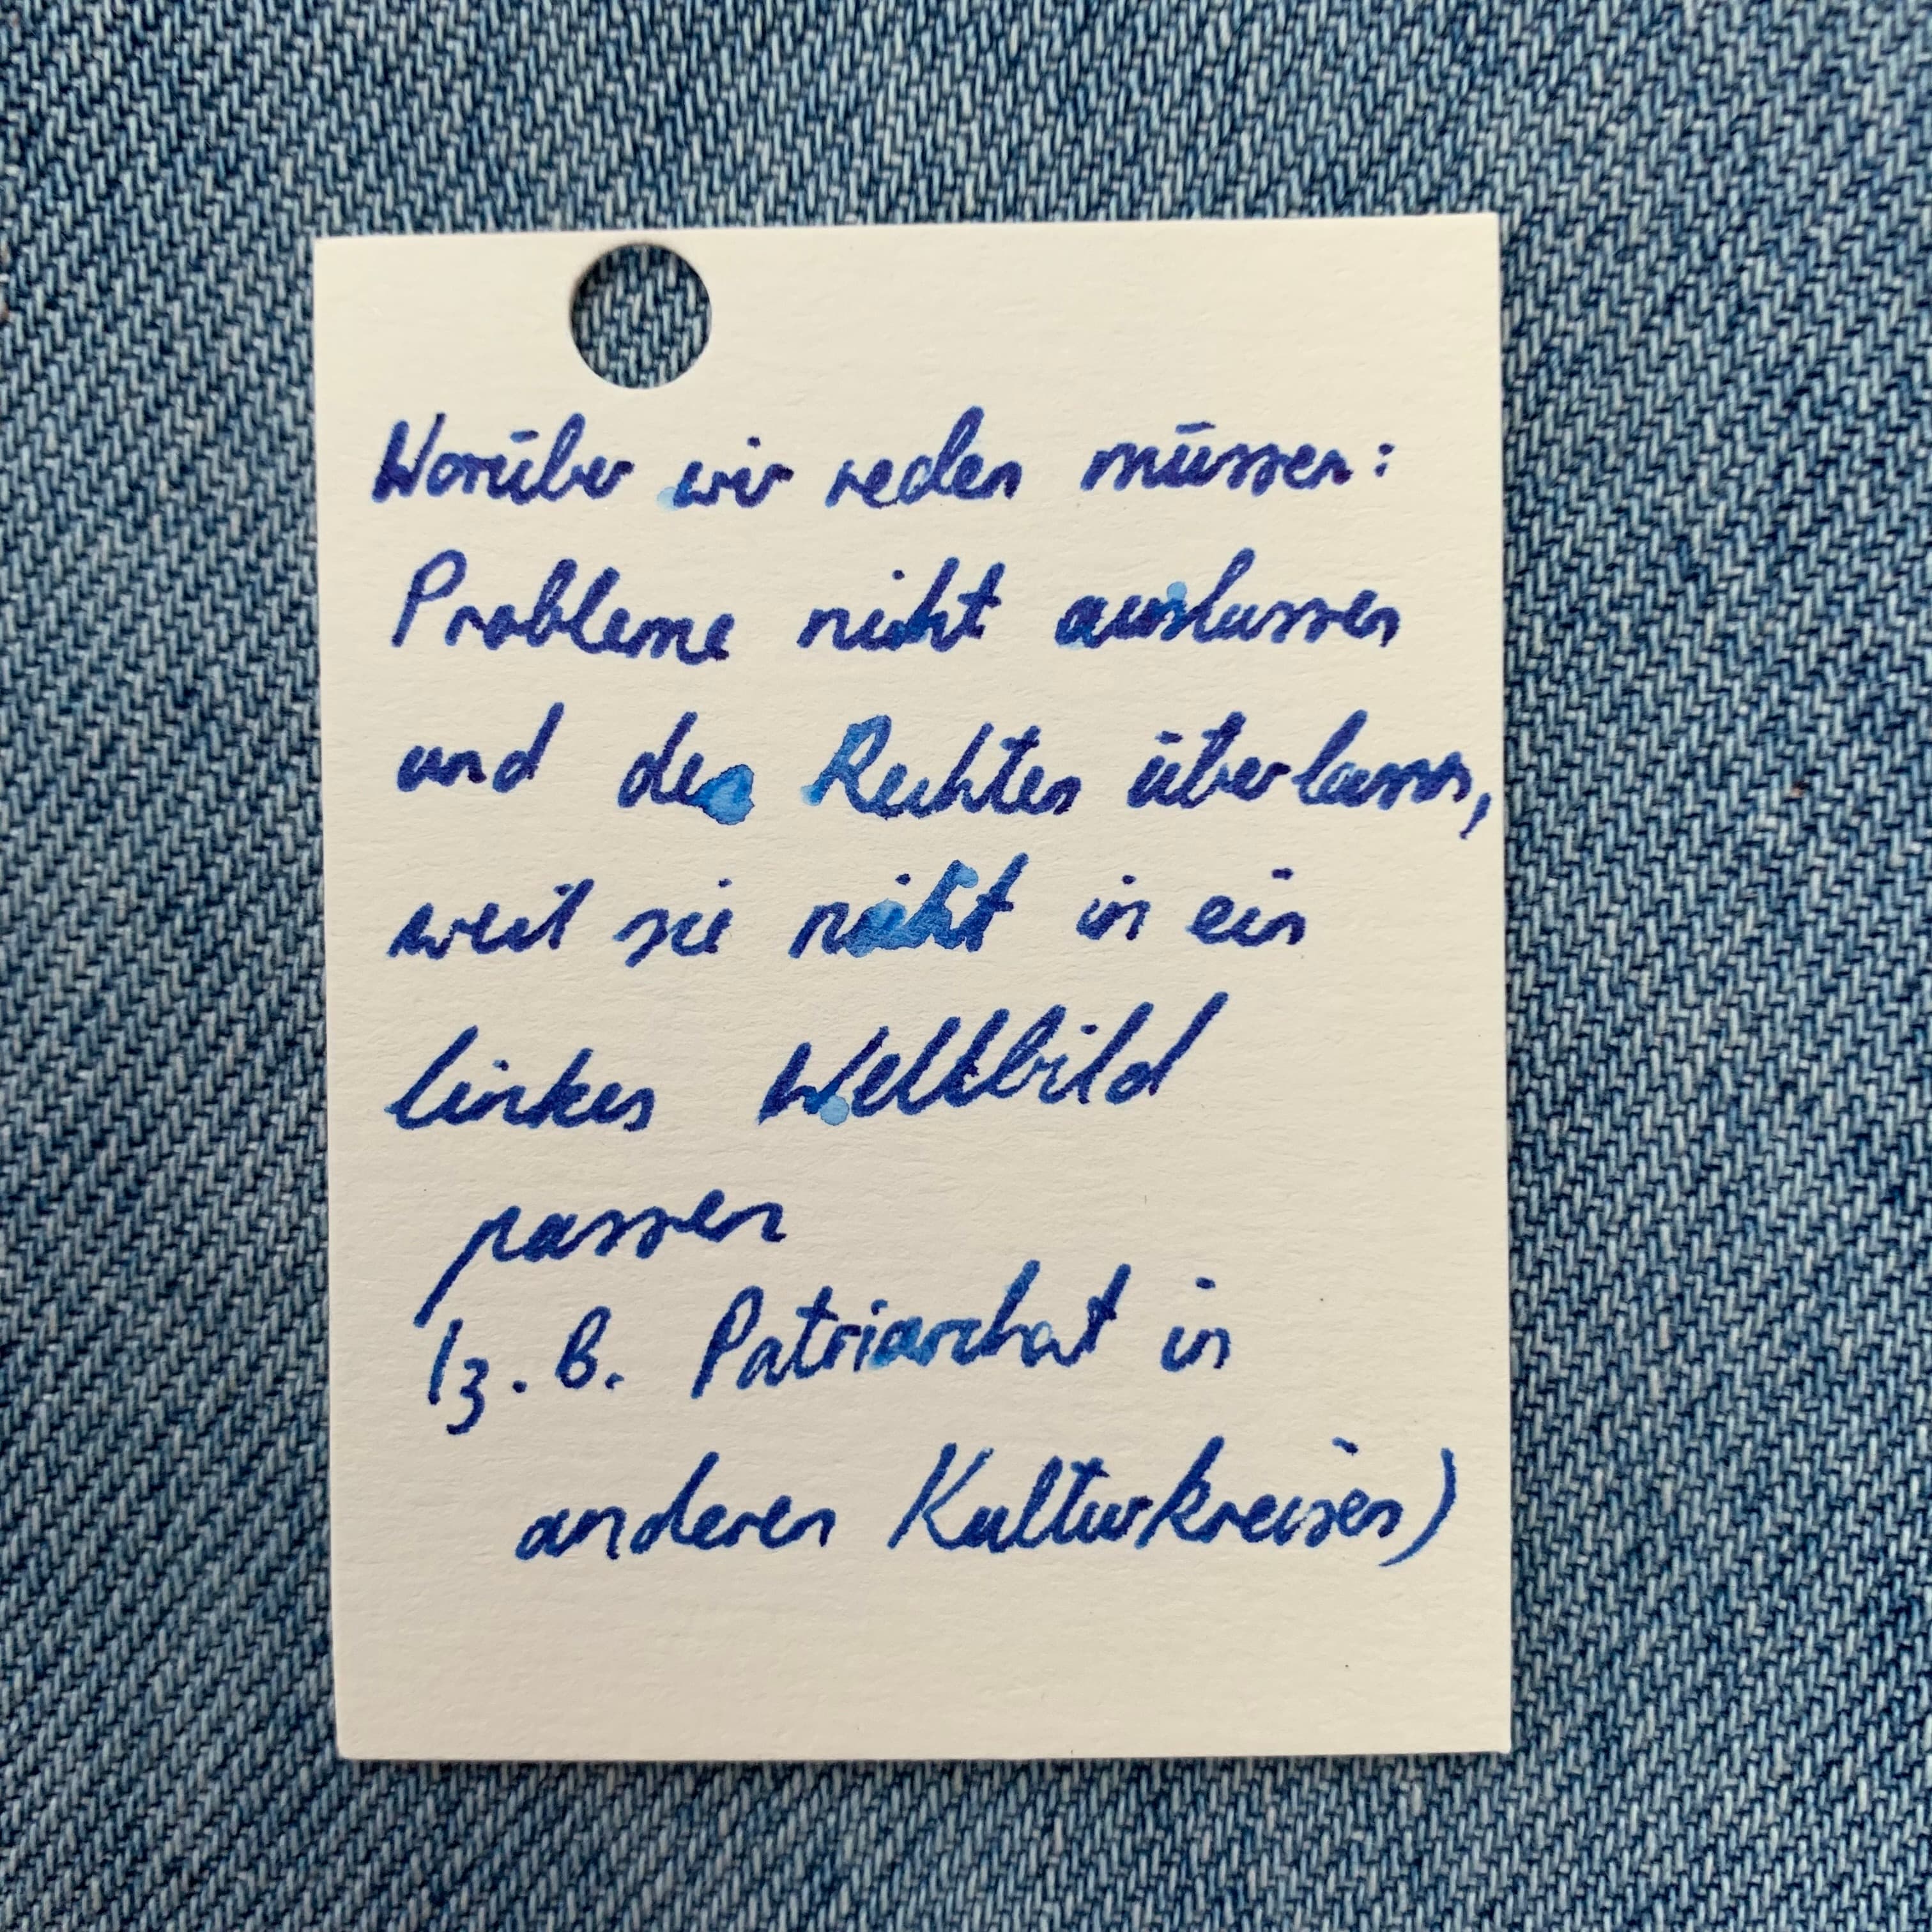 Worüber wir reden müssen:
Probleme nicht auslassen
und den Rechten überlassen,
weil sie nicht in ein
linkes Weltbild
passen
(z. B. Patriarchat in
anderen Kulturkreisen)